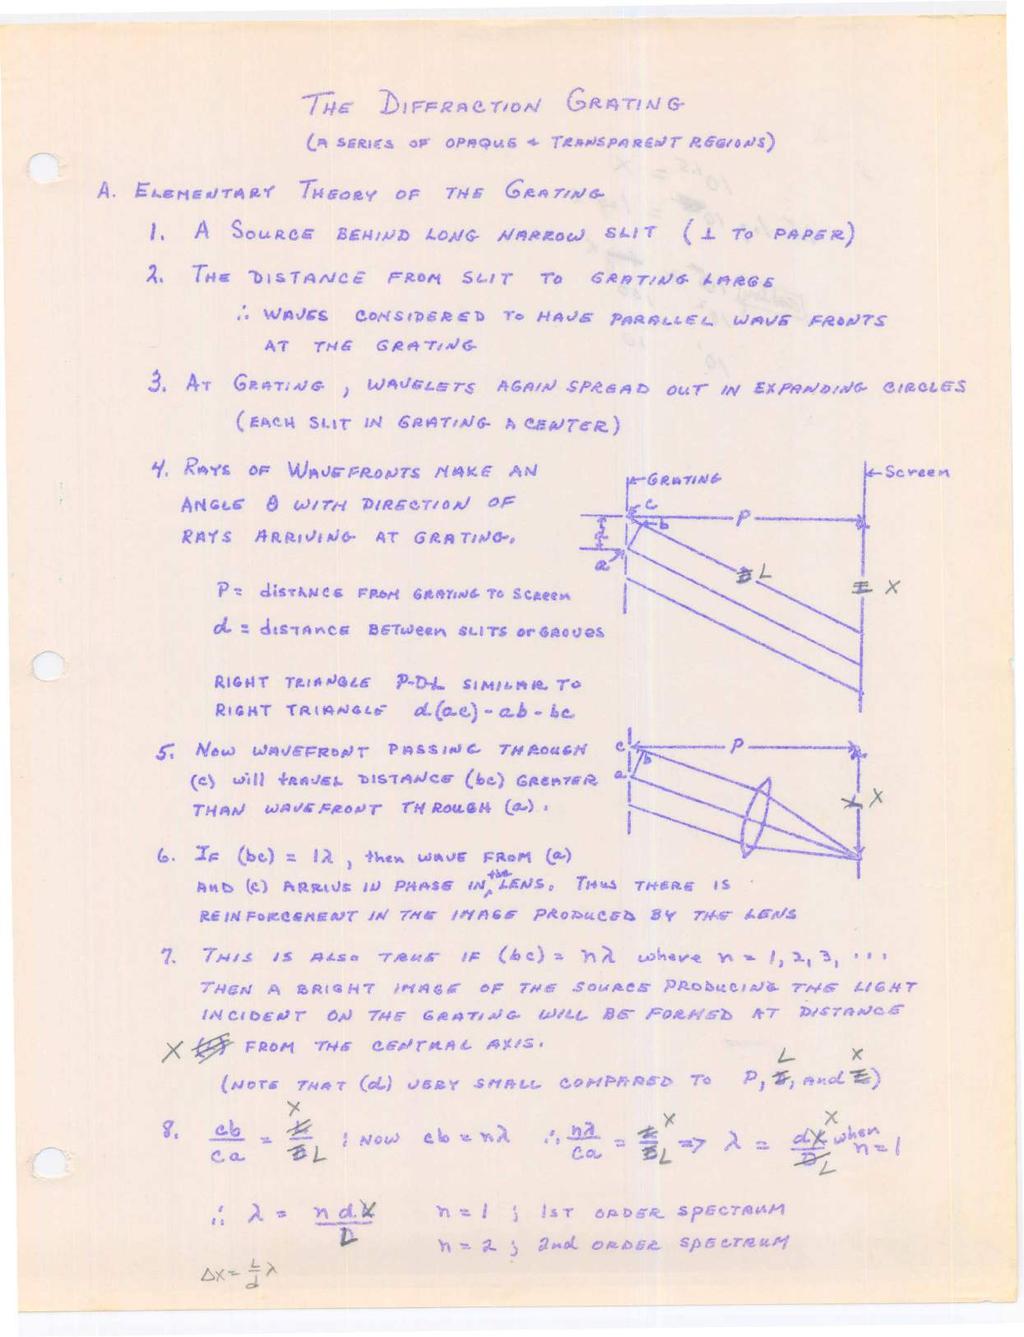 THE DIFFRACTION GRATING
(A SERIES OF OPAQUE & TRANSPARENT REGIONS)
A. ELEMENTARY THEORY OF THE GRATING
1. A SOURCE BEHIND LONG NARROW SLIT (⊥ TO PAPER)
2. THE DISTANCE FROM SLIT TO GRATING LARGE
∴ WAVES CONSIDERED TO HAVE PARALLEL WAVE FRONTS
AT THE GRATING
3. AT GRATING, WAVELETS AGAIN SPREAD OUT IN EXPANDING CIRCLES
(EACH SLIT IN GRATING A CENTER)
4. RAYS OF WAVEFRONTS MAKE AN
ANGLE θ WITH DIRECTION OF
RAYS ARRIVING AT GRATING.
GRATING
Screen
c
P
b
a
L
X
P = distance FROM GRATING TO SCREEN
d = distance BETWEEN SLITS or GROVES
RIGHT TRIANGLE P-D-L SIMILAR TO
RIGHT TRIANGLE d(ac)-ab-bc
5. NOW WAVEFRONT PASSING THROUGH
(c) will travel DISTANCE (bc) GREATER
THAN WAVEFRONT THROUGH (a).
c
P
b
a
X
6. IF (bc) = 1λ, then WAVE FROM (a)
AND (c) ARRIVE IN PHASE IN the LENS. THUS THERE IS
REINFORCEMENT IN THE IMAGE PRODUCED BY THE LENS
7. THIS IS ALSO TRUE IF (bc) = nλ where n = 1, 2, 3, ...
THEN A BRIGHT IMAGE OF THE SOURCE PRODUCING THE LIGHT
INCIDENT ON THE GRATING WILL BE FORMED AT DISTANCE
X FROM THE CENTRAL AXIS.
(NOTE THAT (d) VERY SMALL COMPARED TO P, L, and X)
8. cb/ca = X/L ; NOW cb = nλ ∴ nλ/ca = X/L => λ = dX/L when n = 1
∴ λ = ndX/L n = 1 ; 1ST ORDER SPECTRUM
n = 2 ; 2nd ORDER SPECTRUM
Δx = L/d λ